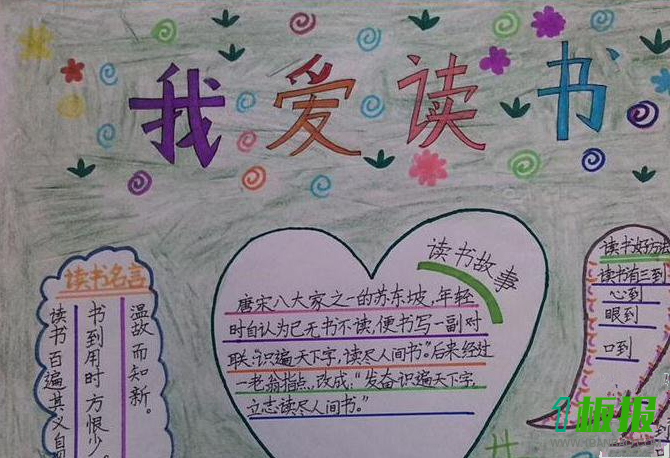 我爱读书
读书名言
温故而知新。
书到用时方恨少。
读书百遍其义自
读书故事
唐宋八大家之一的苏东坡,年轻
时自认为已无书不读,便书写一副对
联:“识遍天下字,读尽人间书”。后来经过
一老翁指点,改成:“发奋识遍天下字,
立志读尽人间书。”
读书好方法
读书有三到
心到
眼到
口到
板报